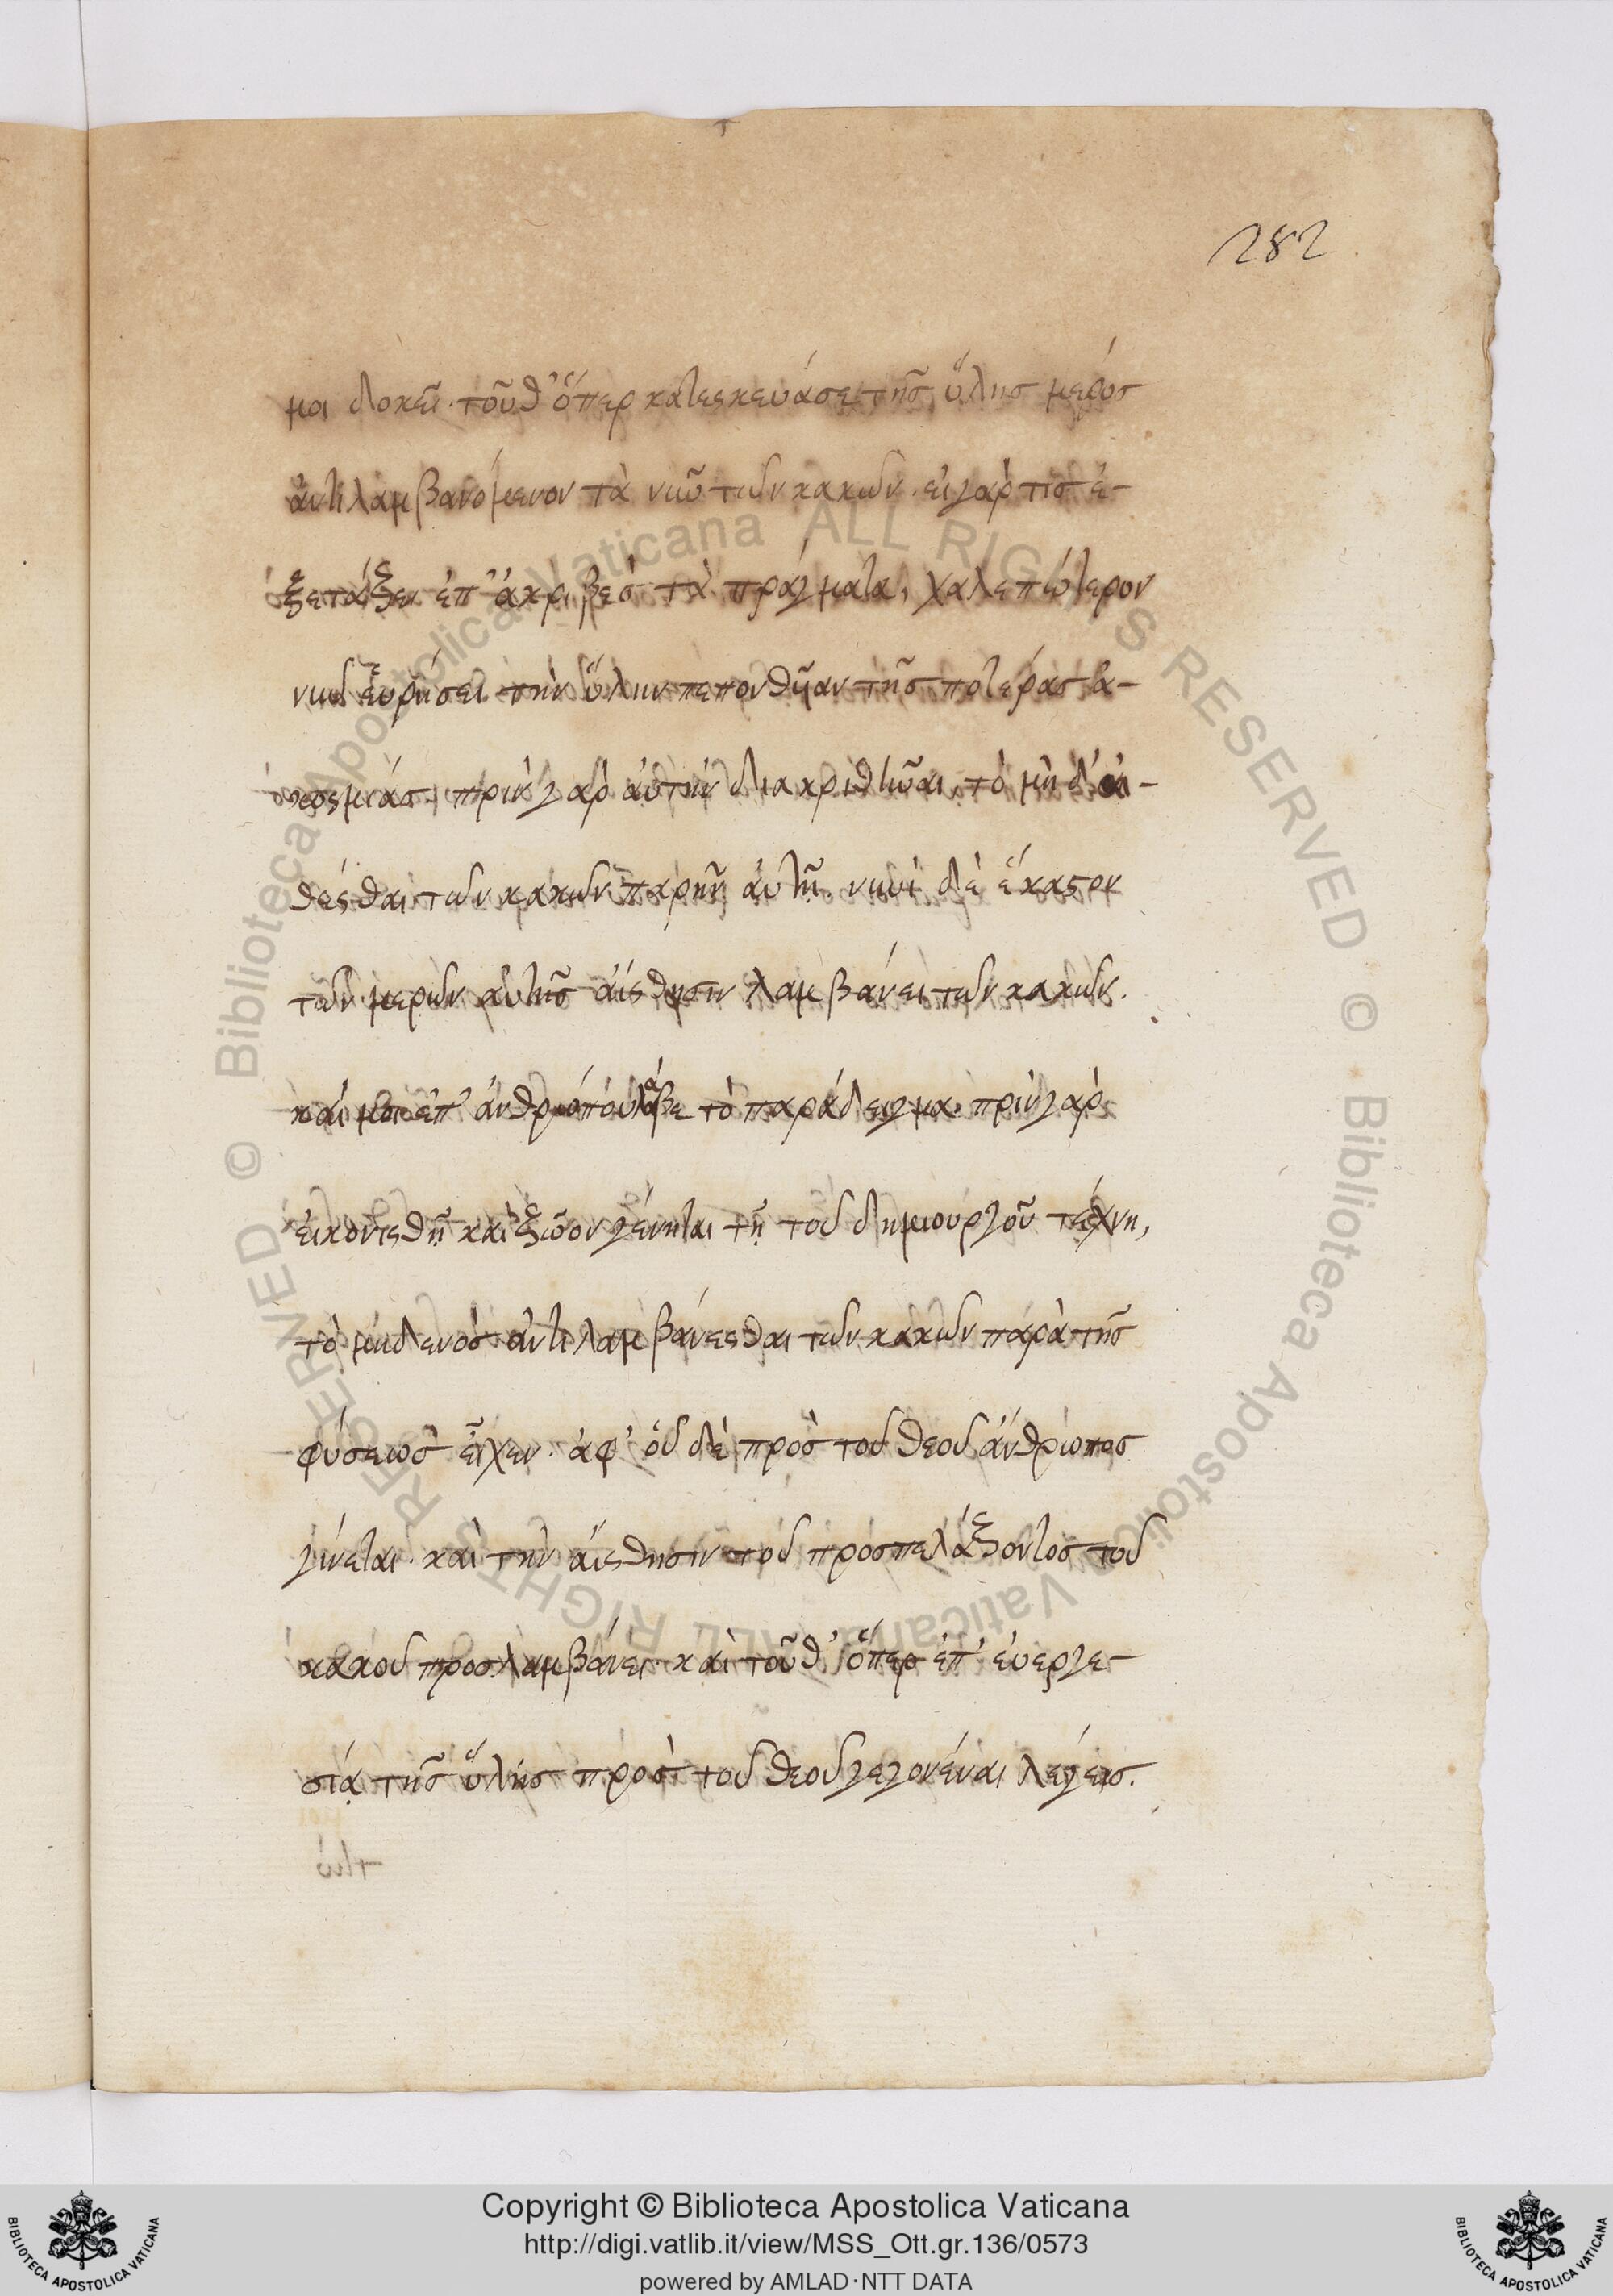 282
μοι δοκεῖ. τοῦθ' ὅπερ κατεσκεύασε τῆς ὕλης μερος
ἀντιλαμβανόμενον τὰ νῦν τῶν κακῶν. εἰ γάρ τις ἐ-
ξετάξει ἐπ' ἀκριβὲς τὰ πράγματα, χαλεπώτερον
νῦν εὑρήσει τὴν ὕλην πεπονθῆαν τῆς ποτέρας ἀ-
κοσμιάς. πρὶν γὰρ αὐτὴν διακριθῆναι, τὸ μὴ δ' αἰ-
θέσθαι τῶν κακῶν παρῆν αὐτῇ. νυνὶ δὲ ἕκαστον
τῶν μερῶν αὐτῆς αἴσθησιν λαμβάνει τῶν κακῶν.
καί μοι ἐπ' ἀνθρώπου λάβε τὸ παράδειγμα. πρὶν γὰρ
εἰκονισθῇ καὶ ζῶον γένηται τῇ τοῦ δημιουργοῦ τέχνῃ,
τὸ μηδενὸς ἀντιλαμβάνεσθαι τῶν κακῶν παρὰ τῆς
φύσεως εἶχεν. ἀφ' οὗ δὲ πρὸς τοῦ θεοῦ ἄνθρωπος
γίνεται. καὶ τὴν αἴσθησιν τοῦ προσπελάζοντος τοῦ
κακοῦ προσλαμβάνει. καὶ τοῦθ' ὅπερ ἐπ' εὐεργε-
σίᾳ τῆς ὕλης πρὸς τοῦ θεοῦ γεγονέναι λέγεις.
© Biblioteca Apostolica Vaticana ALL RIGHTS RESERVED © Biblioteca Apostolica Vaticana ALL RIGHTS RESERVED
Copyright © Biblioteca Apostolica Vaticana
http://digi.vatlib.it/view/MSS_Ott.gr.136/0573
powered by AMLAD·NTT DATA
BIBLIOTECA APOSTOLICA VATICANA
BIBLIOTECA APOSTOLICA VATICANA